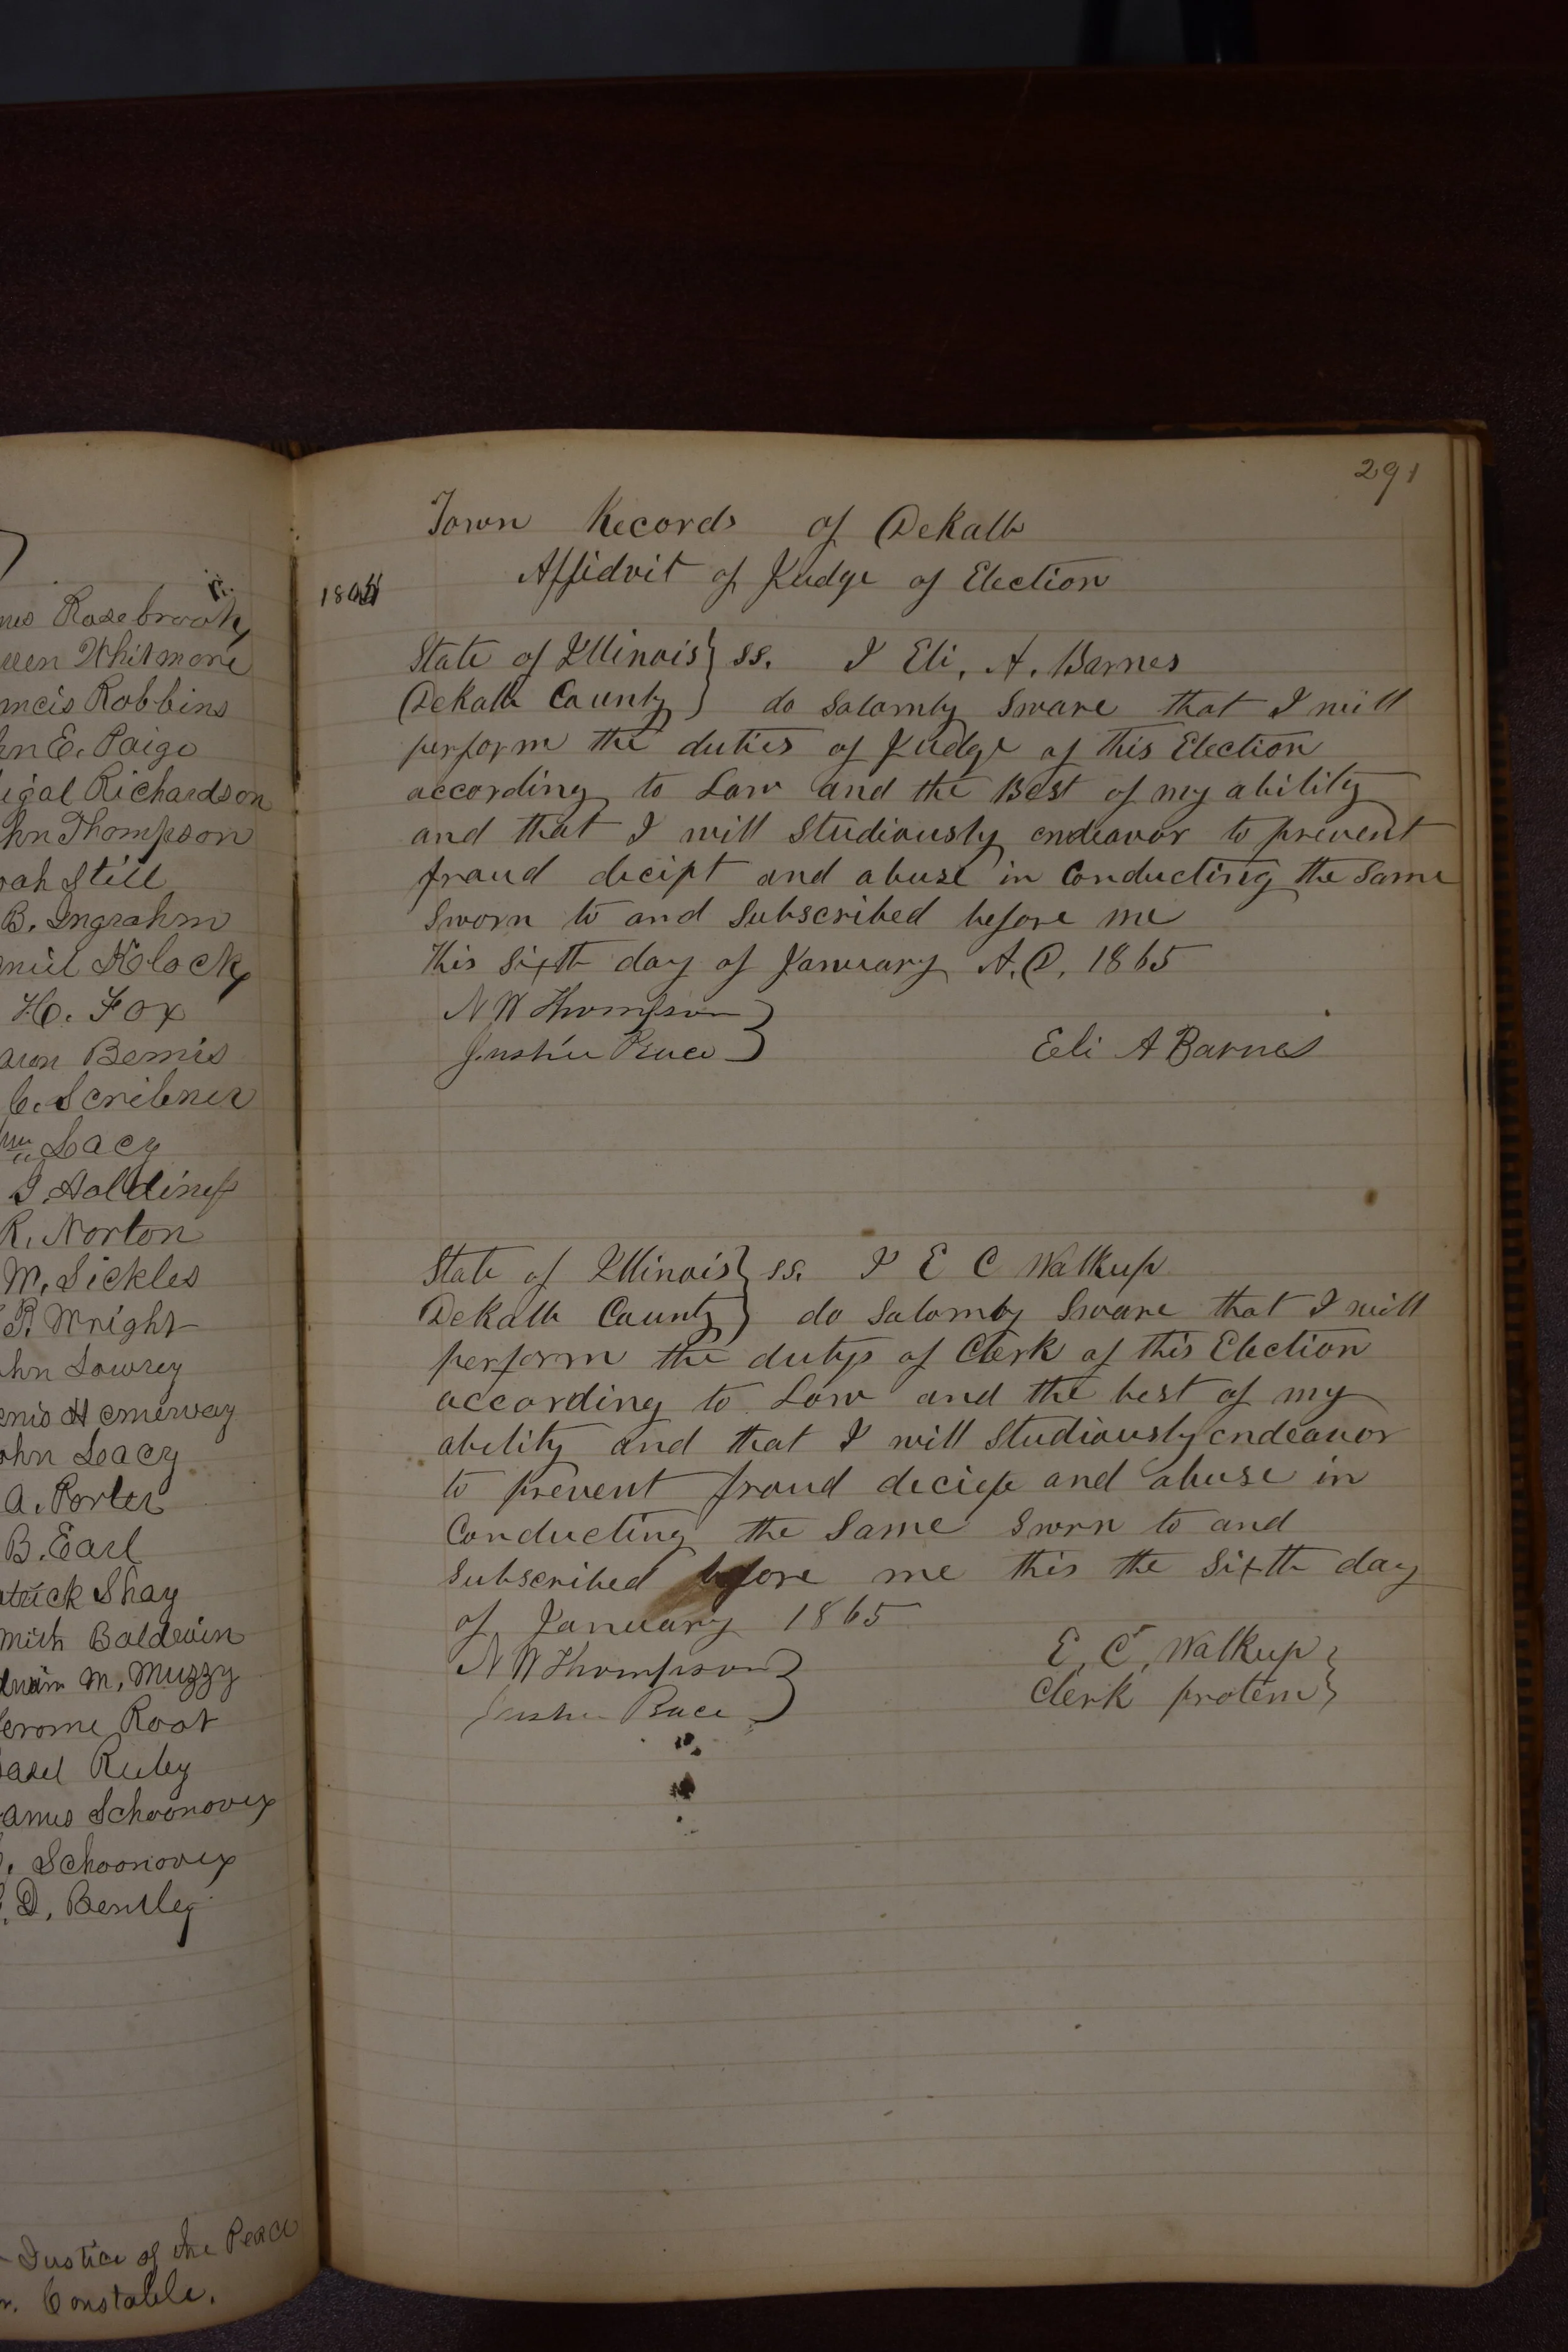 Rosebrook
Whitmore
Robbins
E. Paige
Richardson
Thompson
Still
B. Ingrahm
Klock
H. Fox
Bemis
C. Scribner
Lacy
J. Holdiness
R. Norton
M. Sickles
R. Wright
Lowrey
Hemenway
Leacy
A. Porter
B. Earl
Shay
Baldwin
M. Muzzy
Root
Ruley
Schoonover
Schoonover
D. Bentley
Justice of the Peace
Constable.
291
Town Records of DeKalb
Affidvit of Judge of Election
State of Illinois } ss. I Eli. A. Barnes
DeKalb County } do Solomly Sware that I will
perform the duties of Judge of this Election
according to Law and the Best of my ability
and that I will Studiously endeavor to prevent
fraud decipt and abuse in Conducting the Same
Sworn to and Subscribed before me
this Sixth day of January A.D. 1865
N W Thompson }
Justice Peace }
Eli A Barnes
State of Illinois } ss. I E C Walkup
DeKalb County } do Solomly Sware that I will
perform the dutys of Clerk of this Election
according to Law and the best of my
ability and that I will Studiously endeavor
to prevent fraud and abuse in
Conducting the Same Sworn to and
Subscribed before me this the Sixth day
of January 1865
N W Thompson }
Justice Peace }
E. C. Walkup }
Clerk protem }